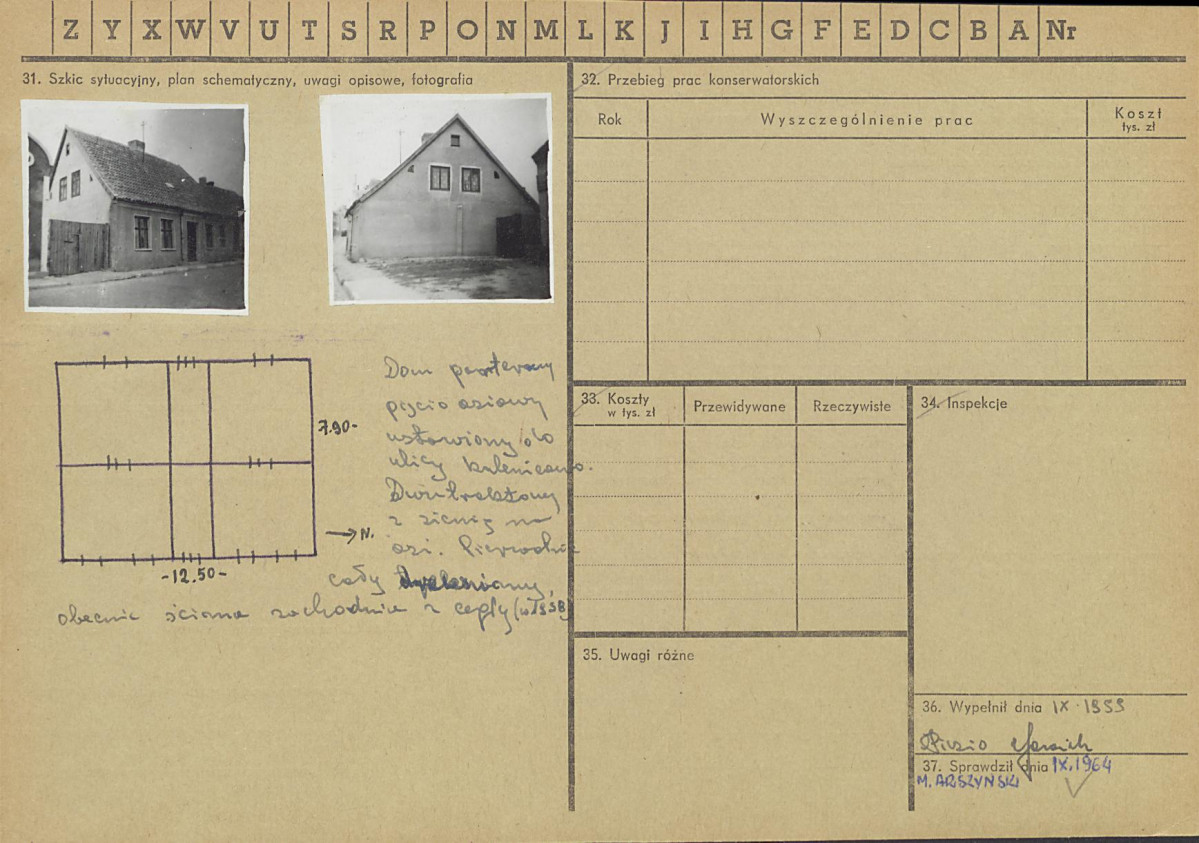 Z Y X W V U T S R P O N M L K J I H G F E D C B A Nr
31. Szkic sytuacyjny, plan schematyczny, uwagi opisowe, fotografia
7.90-
N.
-12.50-
Dom parterowy
pięcio osiowy
ustawiony do
ulicy kalenicowo.
Dwutraktowy
z sienią na
osi. Pierwotnie
cały
obecnie ściana zachodnia z cegły (w 1938)
32. Przebieg prac konserwatorskich
Rok
Wyszczególnienie prac
Koszt
tys. zł
33. Koszty
w tys. zł
Przewidywane
Rzeczywiste
34. Inspekcje
35. Uwagi różne
36. Wypełnił dnia IX 1959
37. Sprawdził dnia IX.1964
M. ARSZYŃSKI